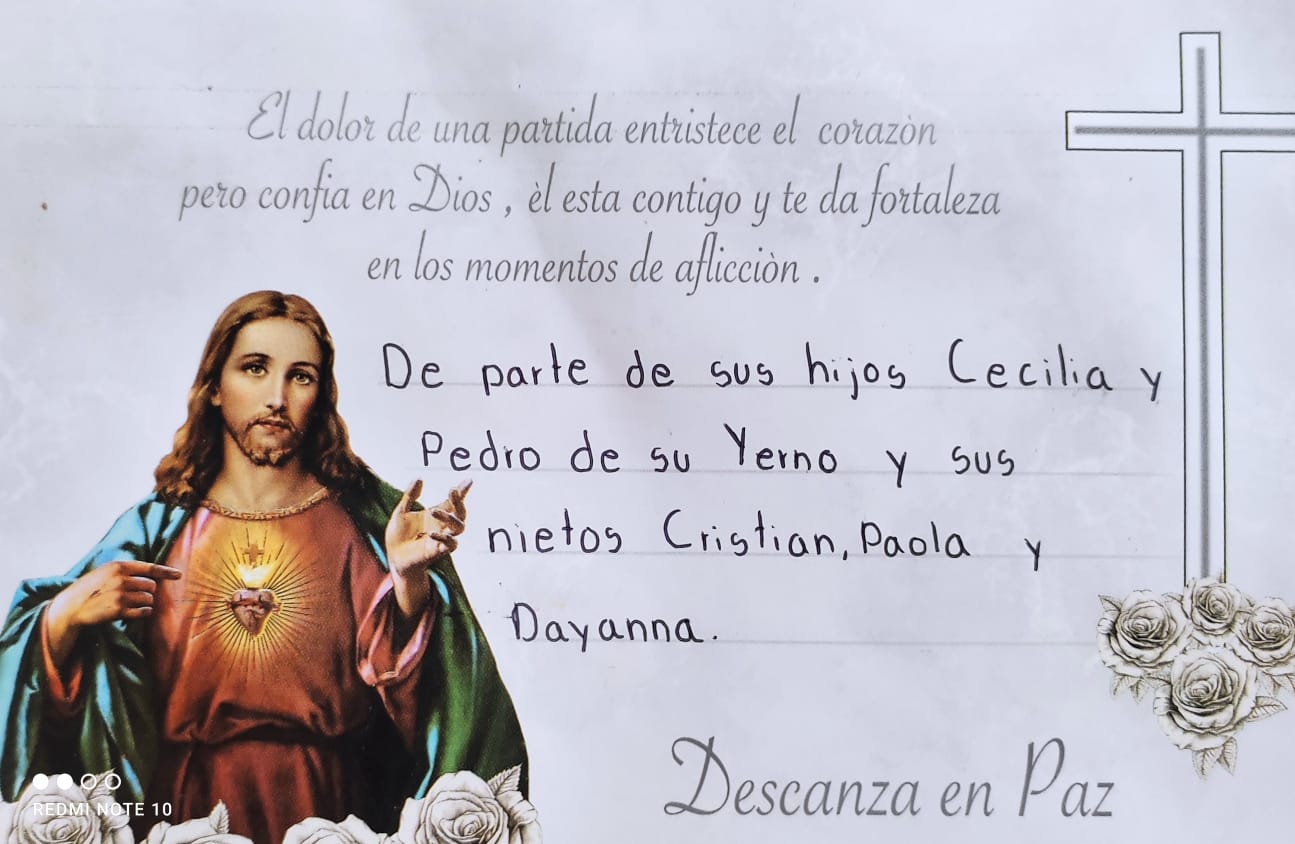 El dolor de una partida entristece el corazòn
pero confia en Dios , èl esta contigo y te da fortaleza
en los momentos de aflicciòn .
De parte de sus hijos Cecilia y
Pedro de su Yerno y sus
nietos Cristian, Paola y
Dayanna.
Descanza en Paz
REDMI NOTE 10